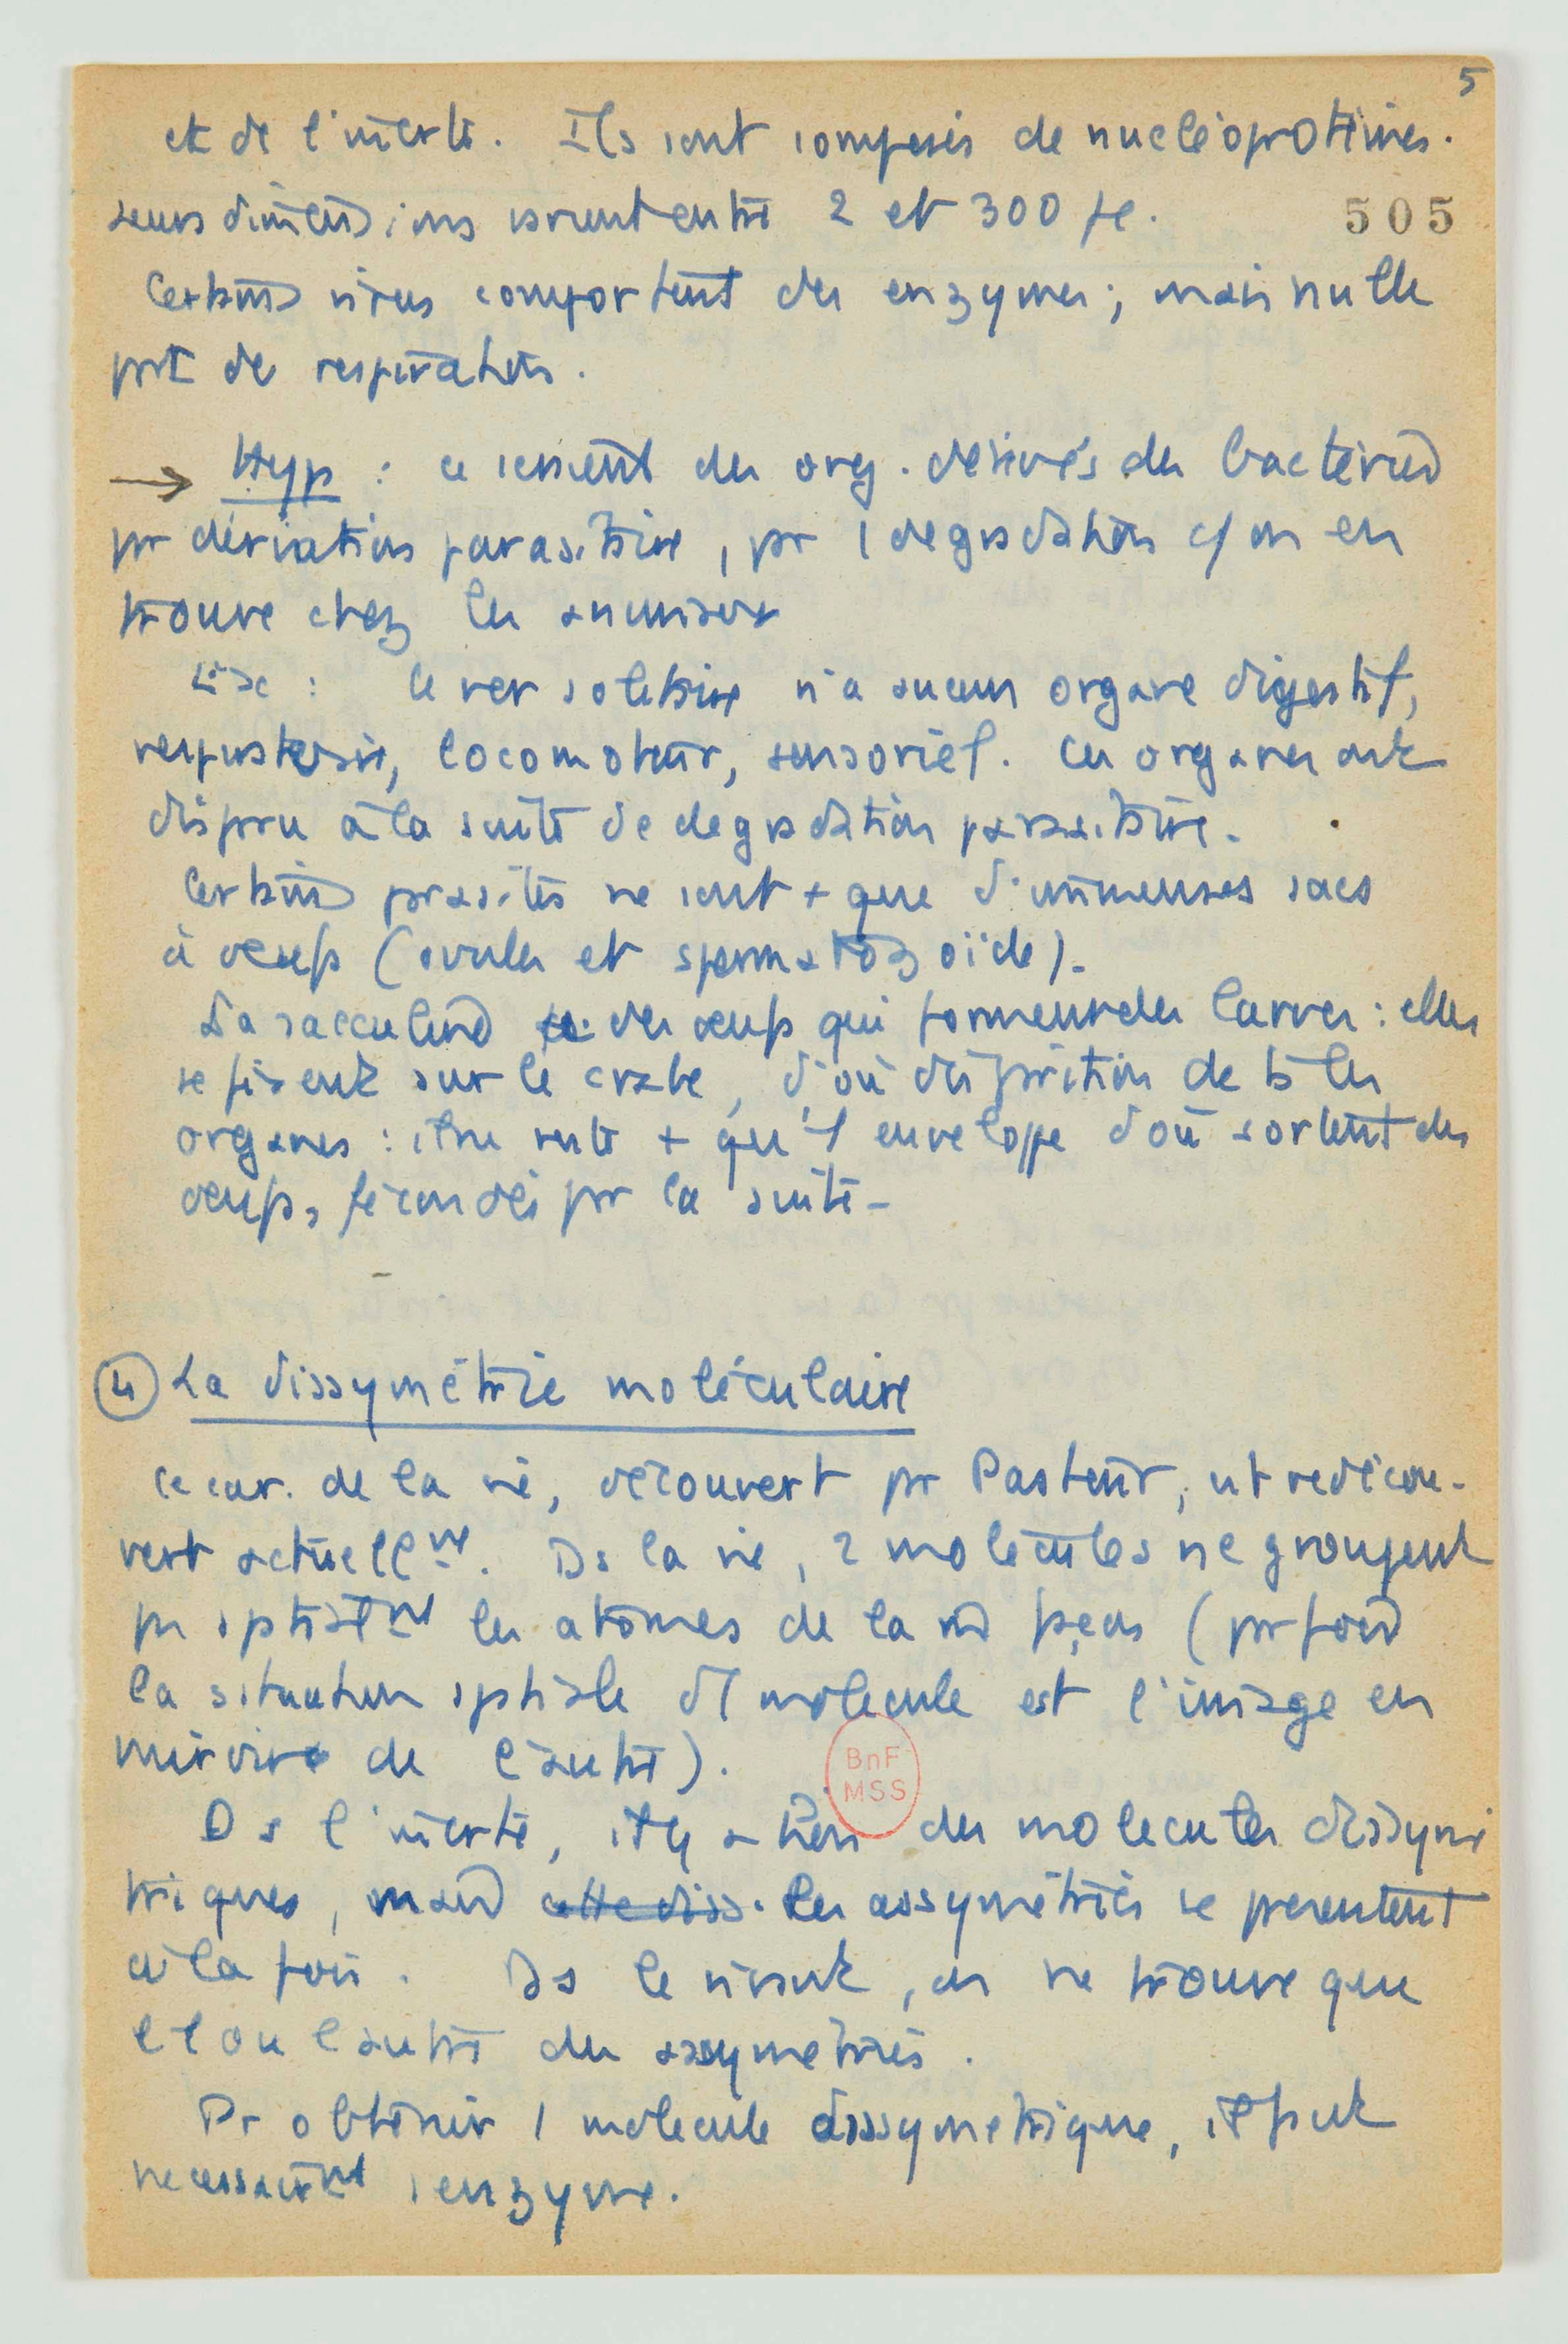 5
et de l'inerte. Ils sont composés de nucléoprotéines.
Leurs dimensions varient entre 2 et 300 µ.
505
Certains virus comportent des enzymes ; mais nulle
prt de respiration.
→ Hyp : ce seraient des org. dérivés des bactéries
pr dérivation parasitaire, pr 1 dégradation c/ on en
trouve chez les animaux
Ex : le ver solitaire n'a aucun organe digestif,
respiratoire, locomoteur, sensoriel. Ces organes ont
dispru à la suite de dégradation parasitaire.
Certains prasites ne sont + que d'immenses sacs
à oeufs (ovules et spermatozoïde).
La sacculine des oeufs qui forment des larves : elles
se fixent sur le crabe, d'où disprition de ts les
organes : il ne reste + qu'1 enveloppe d'où sortent des
oeufs, fécondés pr la suite.
④ La dissymétrie moléculaire
Ce car. de la vie, découvert pr Pasteur, est redécou-
vert actuellmt. Ds la vie, 2 molécules ne groupent
ps sptialmt les atomes de la m façon (pr
la situation sptiale d'1 molécule est l'image en
miroir de l'autre).
BnF
MSS
Ds l'inerte, il y a bien des molécules dissymé
triques, mais cette diss. les assymétries se présentent
à la fois. Ds le vivant, on ne trouve que
l'1 ou l'autre des assymétries.
Pr obtenir 1 molécule dissymétrique, il faut
nécessairmt 1 enzyme.